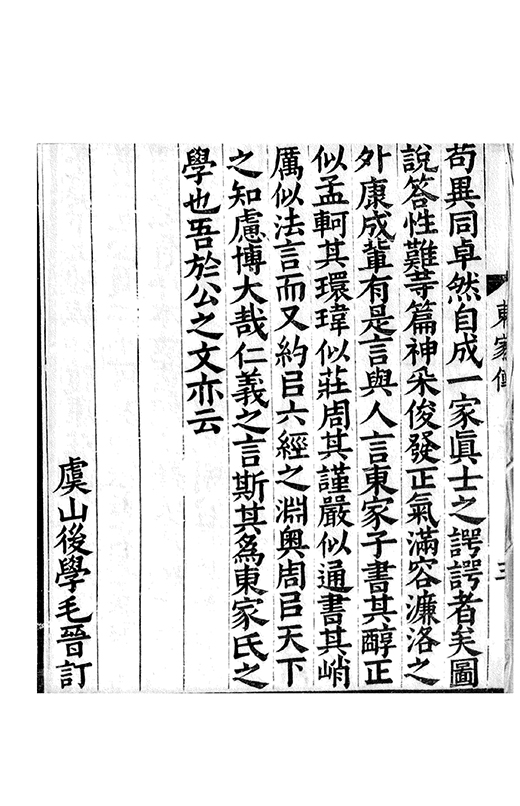 東家傳
三
苟異同卓然自成一家眞士之諤諤者矣圖
說答性難等篇神采俊發正氣滿容濂洛之
外康成輩有是言與人言東家子書其醇正
似孟軻其環瑋似莊周其謹嚴似通書其峭
厲似法言而又約㠯六經之淵奥周㠯天下
之知慮博大哉仁義之言斯其爲東家氏之
學也吾於公之文亦云
虞山後學毛晉訂